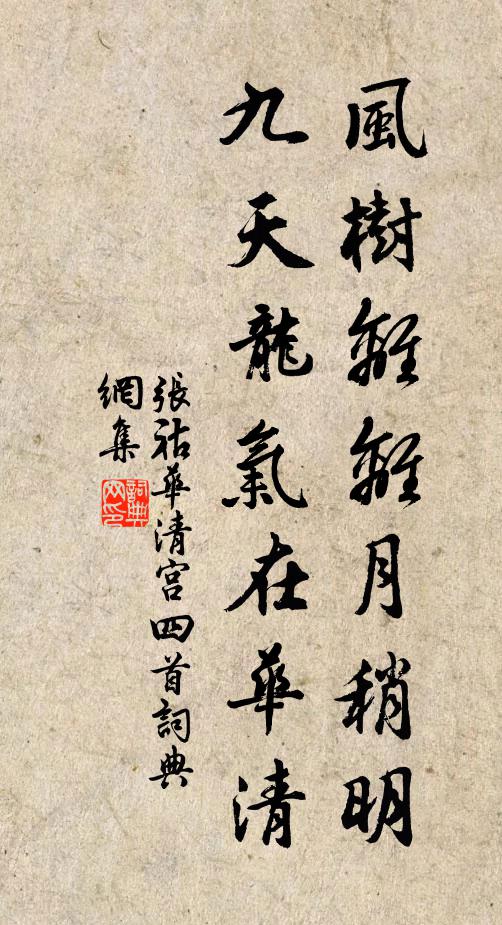 風樹離離月稍明
九天龍氣在華清
張祜華清宮四首詞典
網集
詞典
网印